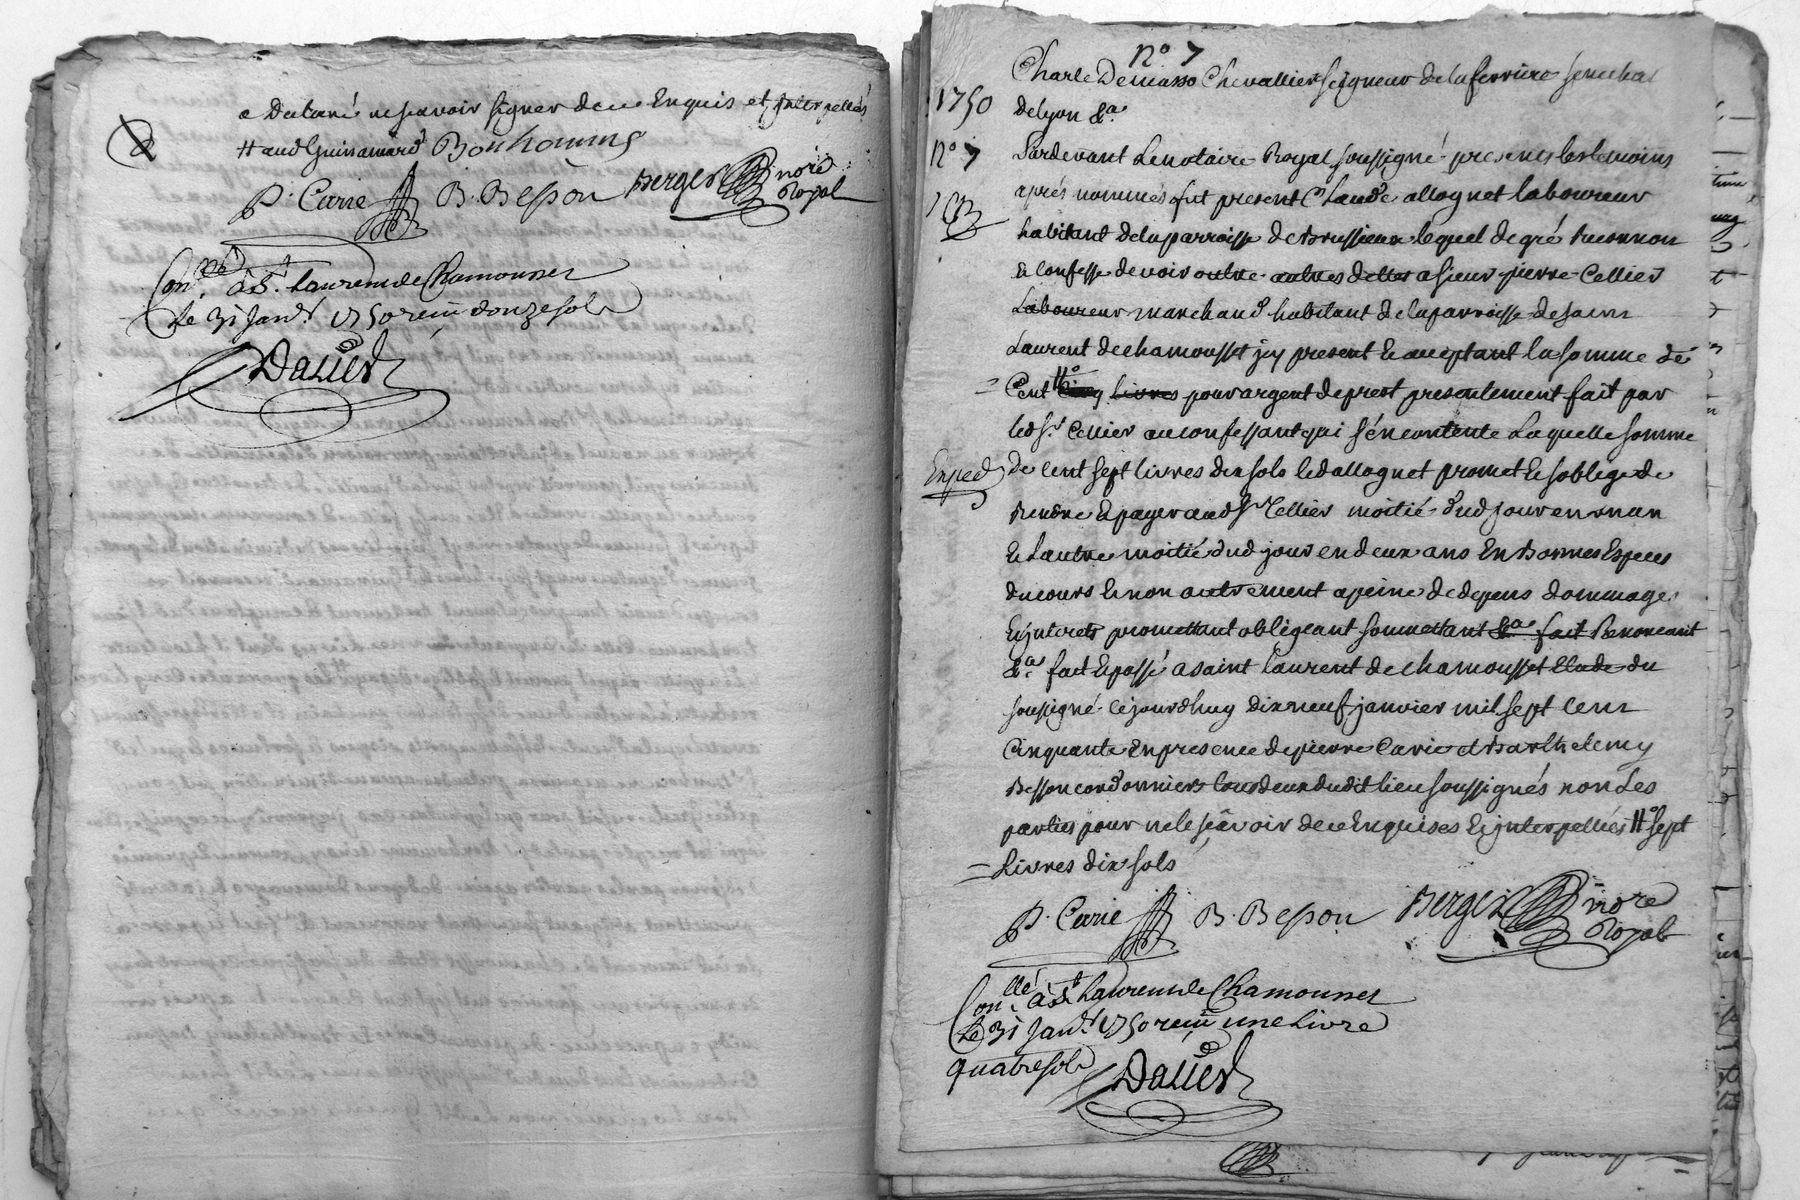 a declaré ne scavoir signer de ce Enquis et jnterpellés
# aud Guinamard Bonhomme
P. Carie B. Besson Berger no.re Royal
Con.lé à S.t Laurent de Chamousset
Le 31 Janv.r 1750 reçu douze sols
Dalier
N.o 7
Charle Demasso Chevallier Seigneur de la ferriere senechal
1750
de Lyon &a.
N.o 7
Pardevant Le notaire Royal soussigné presents les temoins
après nommés fut present Claude allognet laboureur
habitant de la parroisse de Brussieux lequel de gré Reconnoit
Et Confesse devoir outre autres dettes a sieur pierre Cellier
Laboureur marchand habitant de la parroisse de saint
Laurent de chamousset jcy present Et acceptant la somme de
Cent Cinq livres pour argent de prest presentement fait par
led S.r Cellier au confessant qui s'en contente Laquelle somme
Exped
De Cent sept livres dix sols led allognet promet Et s'oblige de
Rendre Et payer aud S.r Cellier moitié dud jour en un an
Et Lautre moitié dud jour en deux ans En Bonnes Especes
du cours Et non autrement a peine de depens dommages
Et jnterets promettant obligeant soumettant &a fait Renonceant
&a fait Et passé a saint Laurent de chamousset Etude du
soussigné cejourdhuy dix neuf janvier mil sept cent
Cinquante En presence de pierre Carie et Barthelemy
Besson cordonniers tous deux dudit lieu soussignés non Les
parties pour ne le scavoir de ce Enquises Et jnterpellées # sept
Livres dix sols
P. Carie B. Besson Berger no.re Royal
Con.llé à S.t Laurent de Chamousset
Le 31 Janv.r 1750 reçu une Livre
quatre sols
Dalier